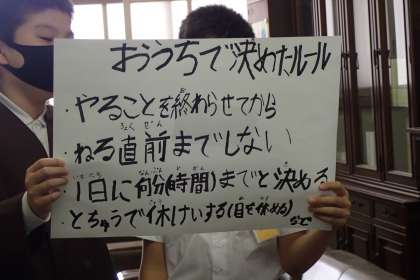 おうちで決めたルール
・やることを終わらせてから
・ねる直前までしない
・1日に何分(時間)までと決める
・とちゅうで休けいする(目を休める)
など